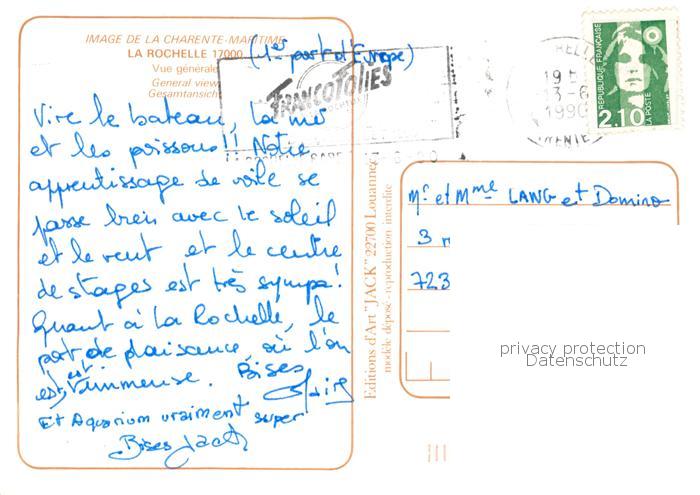 IMAGE DE LA CHARENTE-MARITIME
LA ROCHELLE 17000
Vue générale
General view
Gesamtansicht
(1er port d'Europe)
FRANCOFOLIES
Vive le bateau, la mer
et les poissons!! Notre
apprentissage de voile se
passe bien avec le soleil
et le vent et le centre
de stages est très sympa!
Quant à La Rochelle, le
port de plaisance, où l'on
est, est immense. Bises
Claire
Et Aquarium vraiment super
Bises
Editions d'Art "JACK" 22700 Louannec
modèle déposé - reproduction interdite
19 H
13-6
1990
REPUBLIQUE FRANÇAISE
2,10
LA POSTE
Mr et Mme LANG et Domino
3
723
privacy protection
Datenschutz